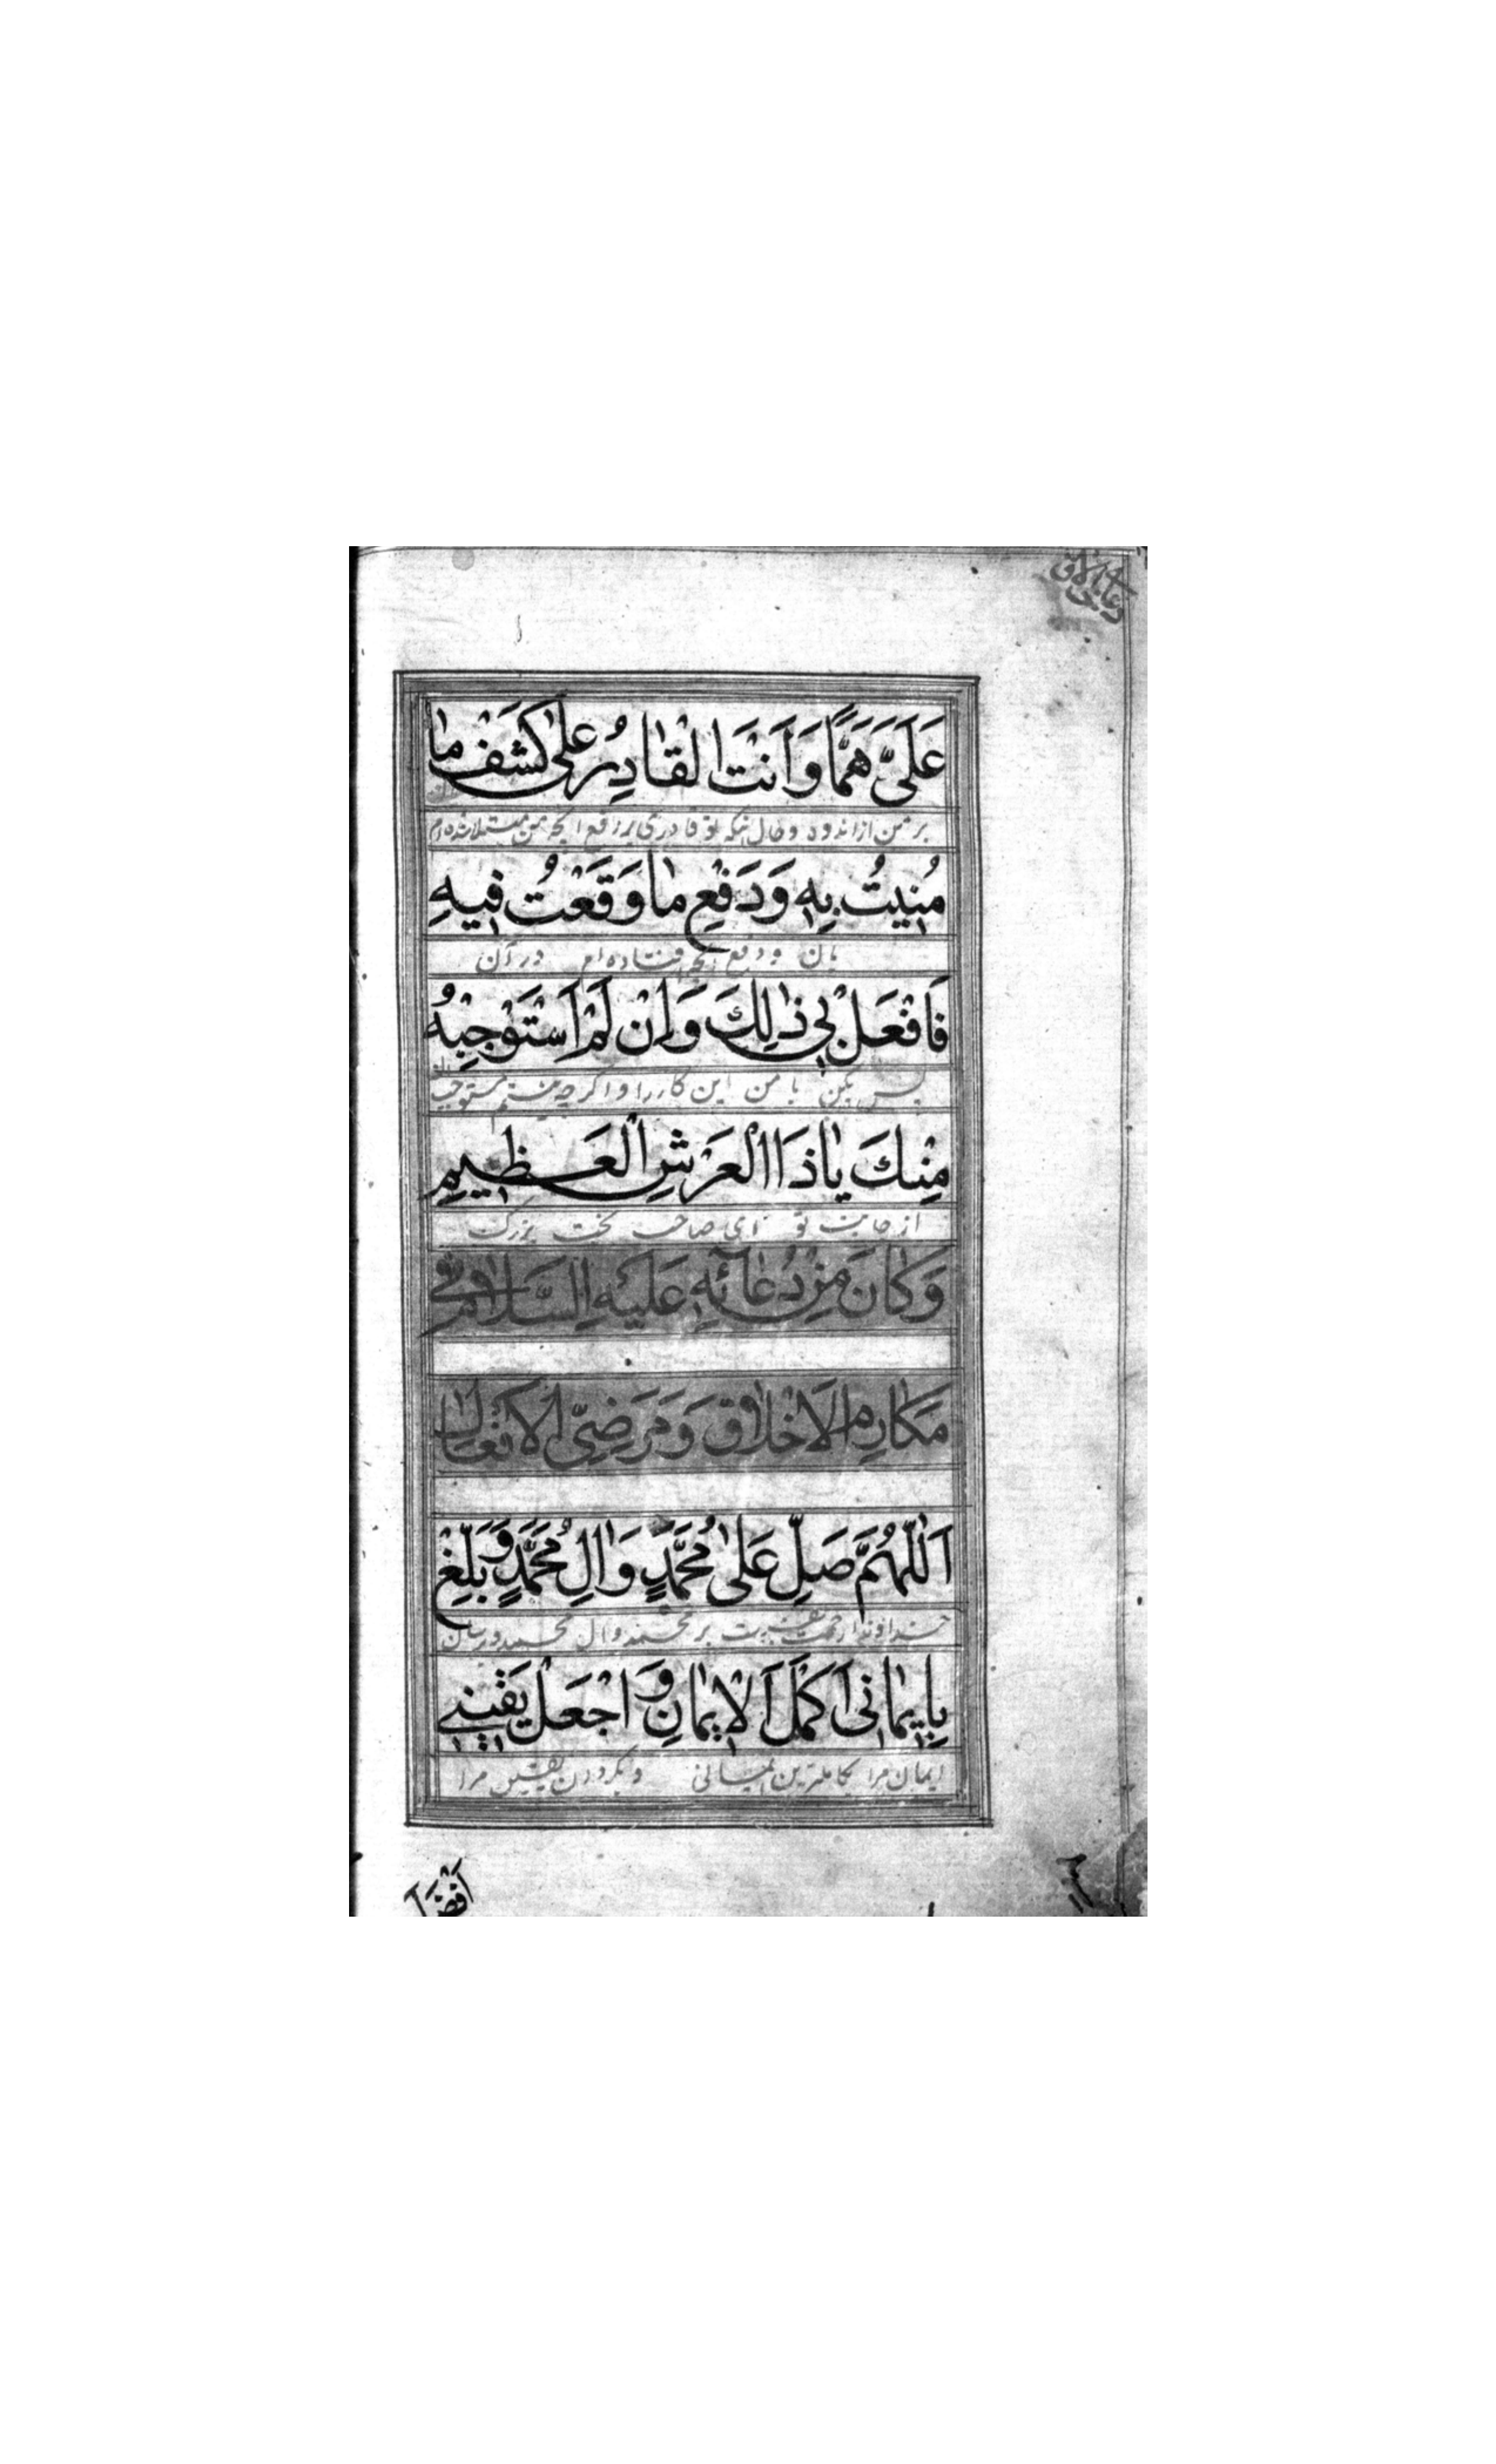 عَلَيَّ هَمًّا وَاَنْتَ الْقٰادِرُ عَلىٰ كَشْفِ مٰا
بر من از اندوه و حال آنکه تو قادری بر رفع آنچه من مبتلا شده‌ام
مُنيتُ بِهِ وَدَفْعِ مٰا وَقَعْتُ فيهِ
بآن و دفع آنچه افتاده‌ام در آن
فَافْعَلْ بي ذٰلِكَ وَاِنْ لَمْ اَسْتَوْجِبْهُ
پس بکن با من این کار را و اگر چه نیستم مستوجب
مِنْكَ يٰا ذَا الْعَرْشِ الْعَظيمِ
از جانب تو ای صاحب تخت بزرگ
وَكٰانَ مِنْ دُعٰآئِهِ عَلَيْهِ السَّلامُ في
مَكٰارِمِ الْاَخْلاقِ وَمَرْضِيِّ الْاَفْعٰالِ
اَللّٰهُمَّ صَلِّ عَلىٰ مُحَمَّدٍ وَاٰلِ مُحَمَّدٍ وَبَلِّغْ
خداوندا رحمت بر محمد و آل محمد و برسان
بِايمٰاني اَكْمَلَ الْايمٰانِ وَاجْعَلْ يَقيني
ایمان مرا بکاملترین ایمانی و بگردان یقین مرا
اَفْضَلَ